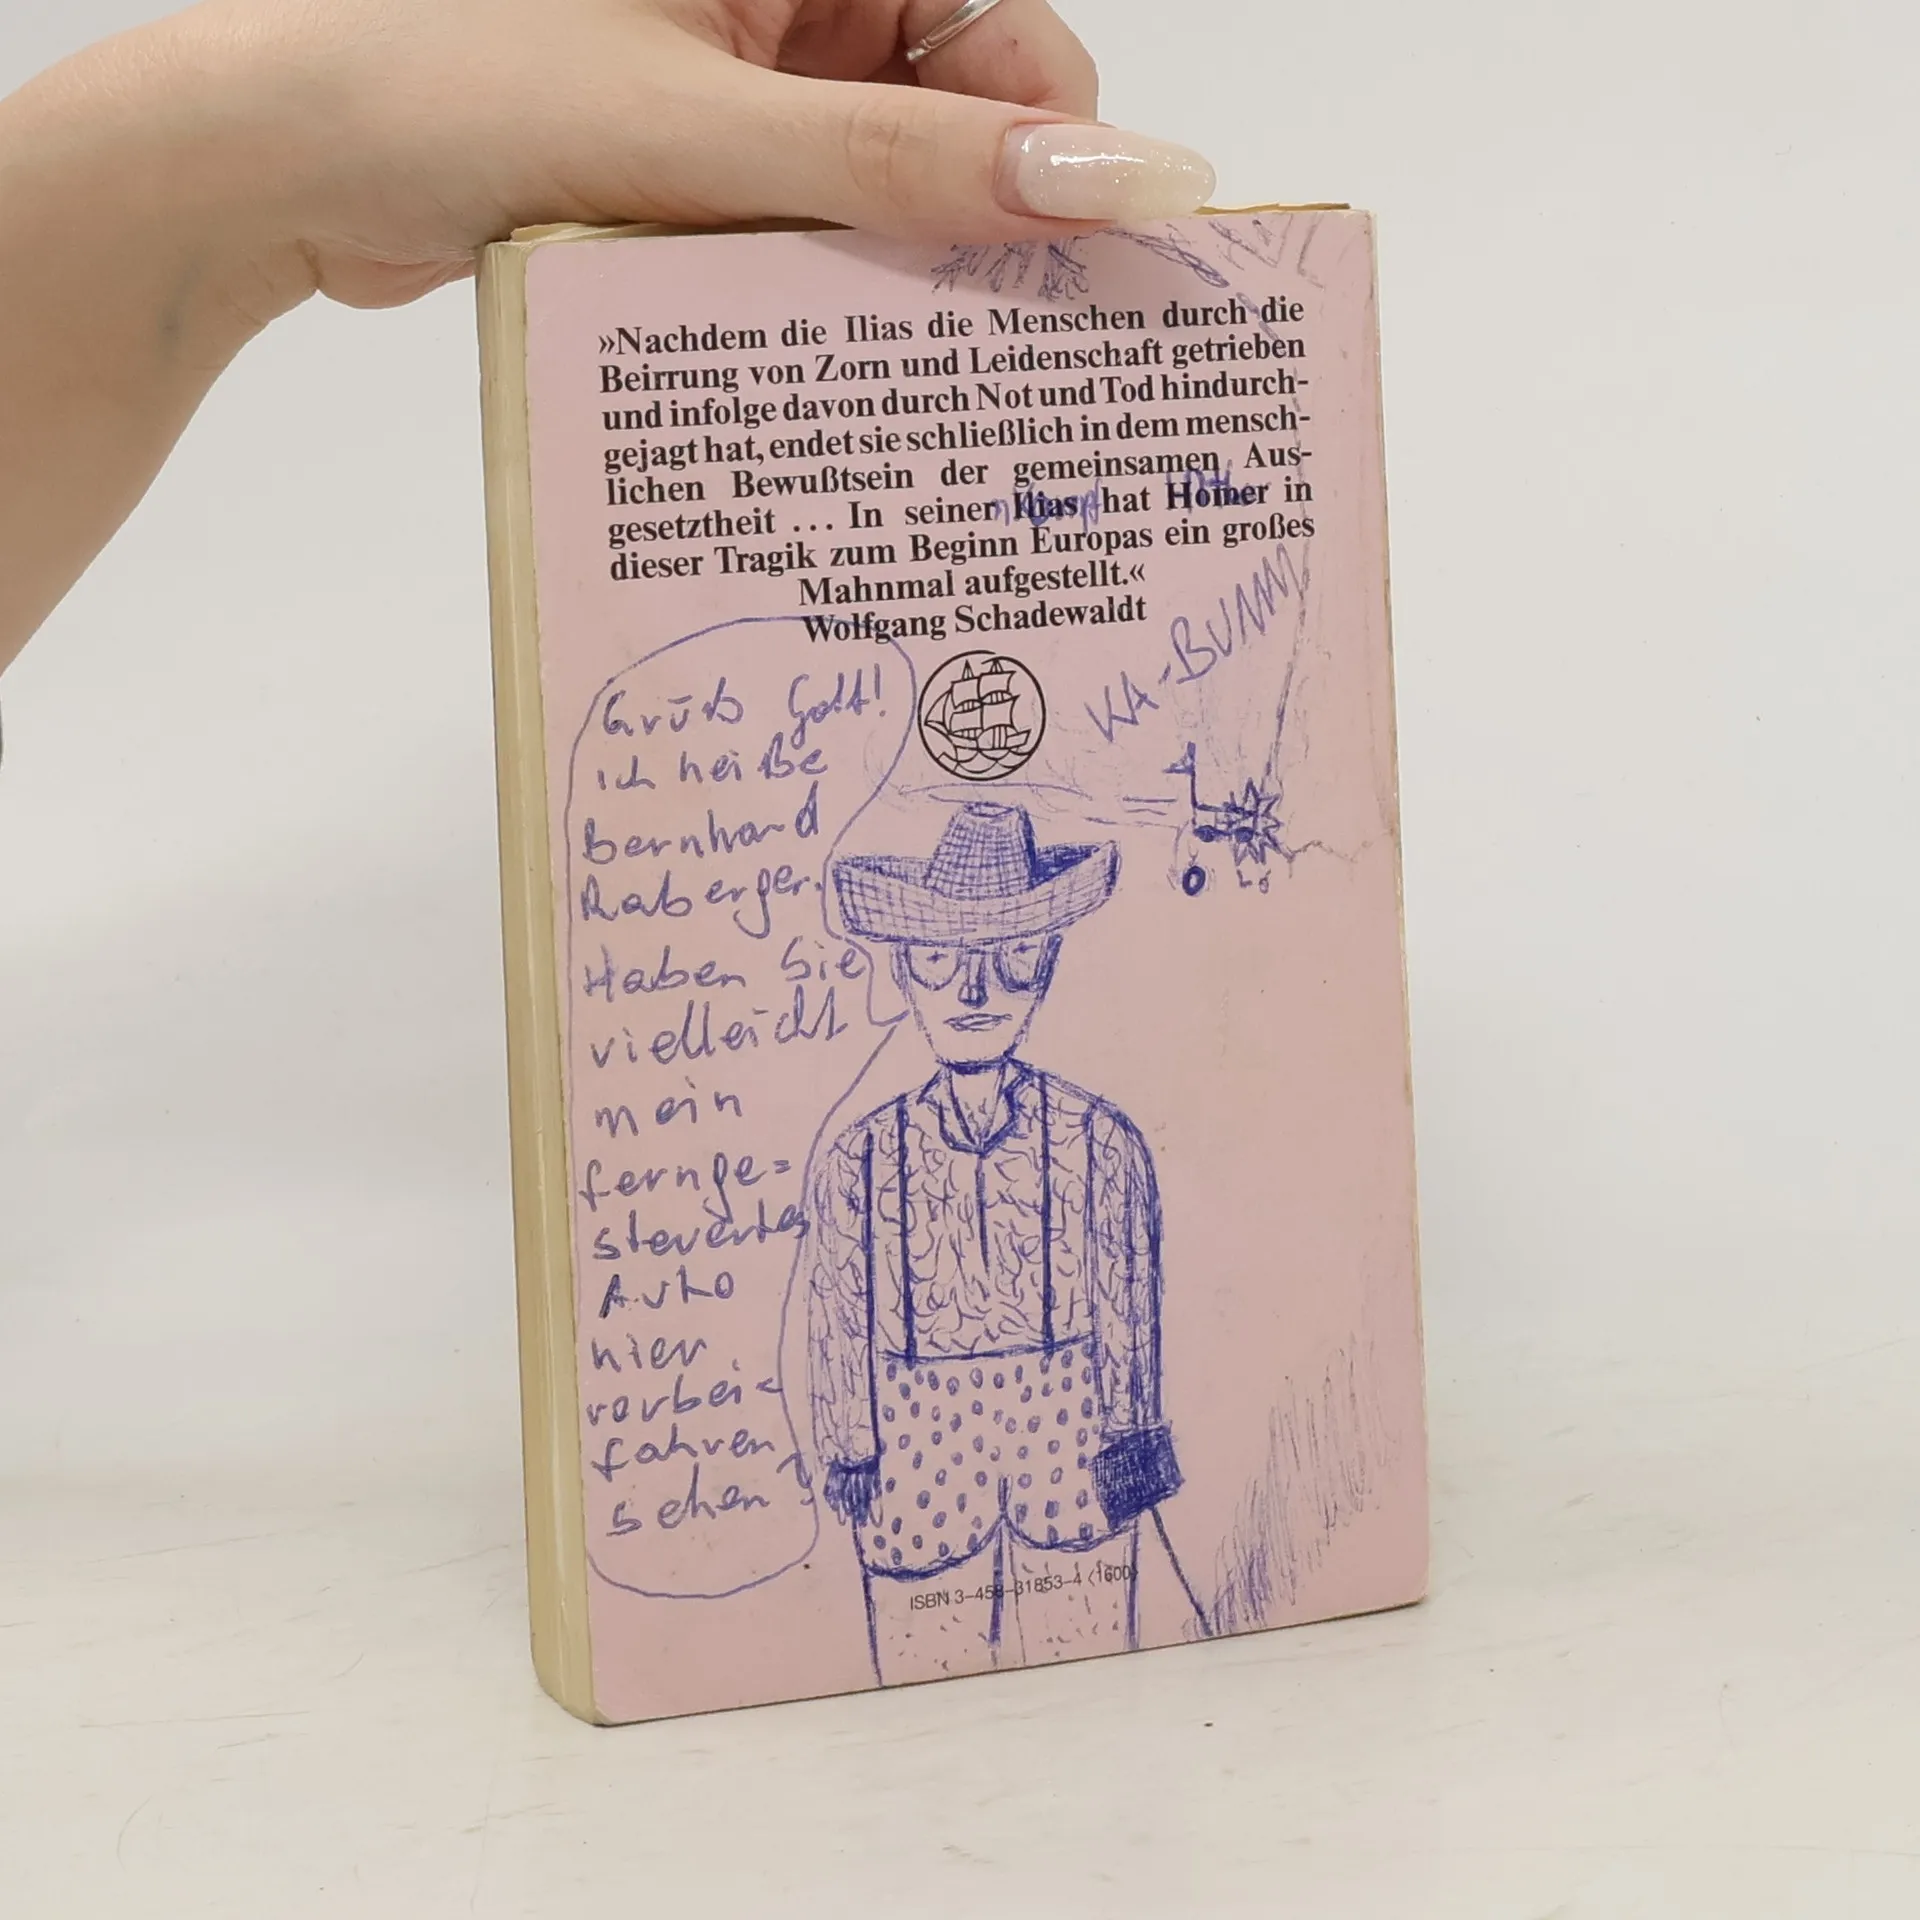 »Nachdem die Ilias die Menschen durch die
Beirrung von Zorn und Leidenschaft getrieben
und infolge davon durch Not und Tod hindurch-
gejagt hat, endet sie schließlich in dem mensch-
lichen Bewußtsein der gemeinsamen Aus-
gesetztheit ... In seiner Ilias hat Homer in
dieser Tragik zum Beginn Europas ein großes
Mahnmal aufgestellt.«
Wolfgang Schadewaldt
KA-BUMM
Grüß Gott!
ich heiße
Bernhard
Raberger.
Haben Sie
vielleicht
mein
fernge=
steuertes
Auto
hier
vorbei=
fahren
sehen?
ISBN 3-458-31853-4 <1600>